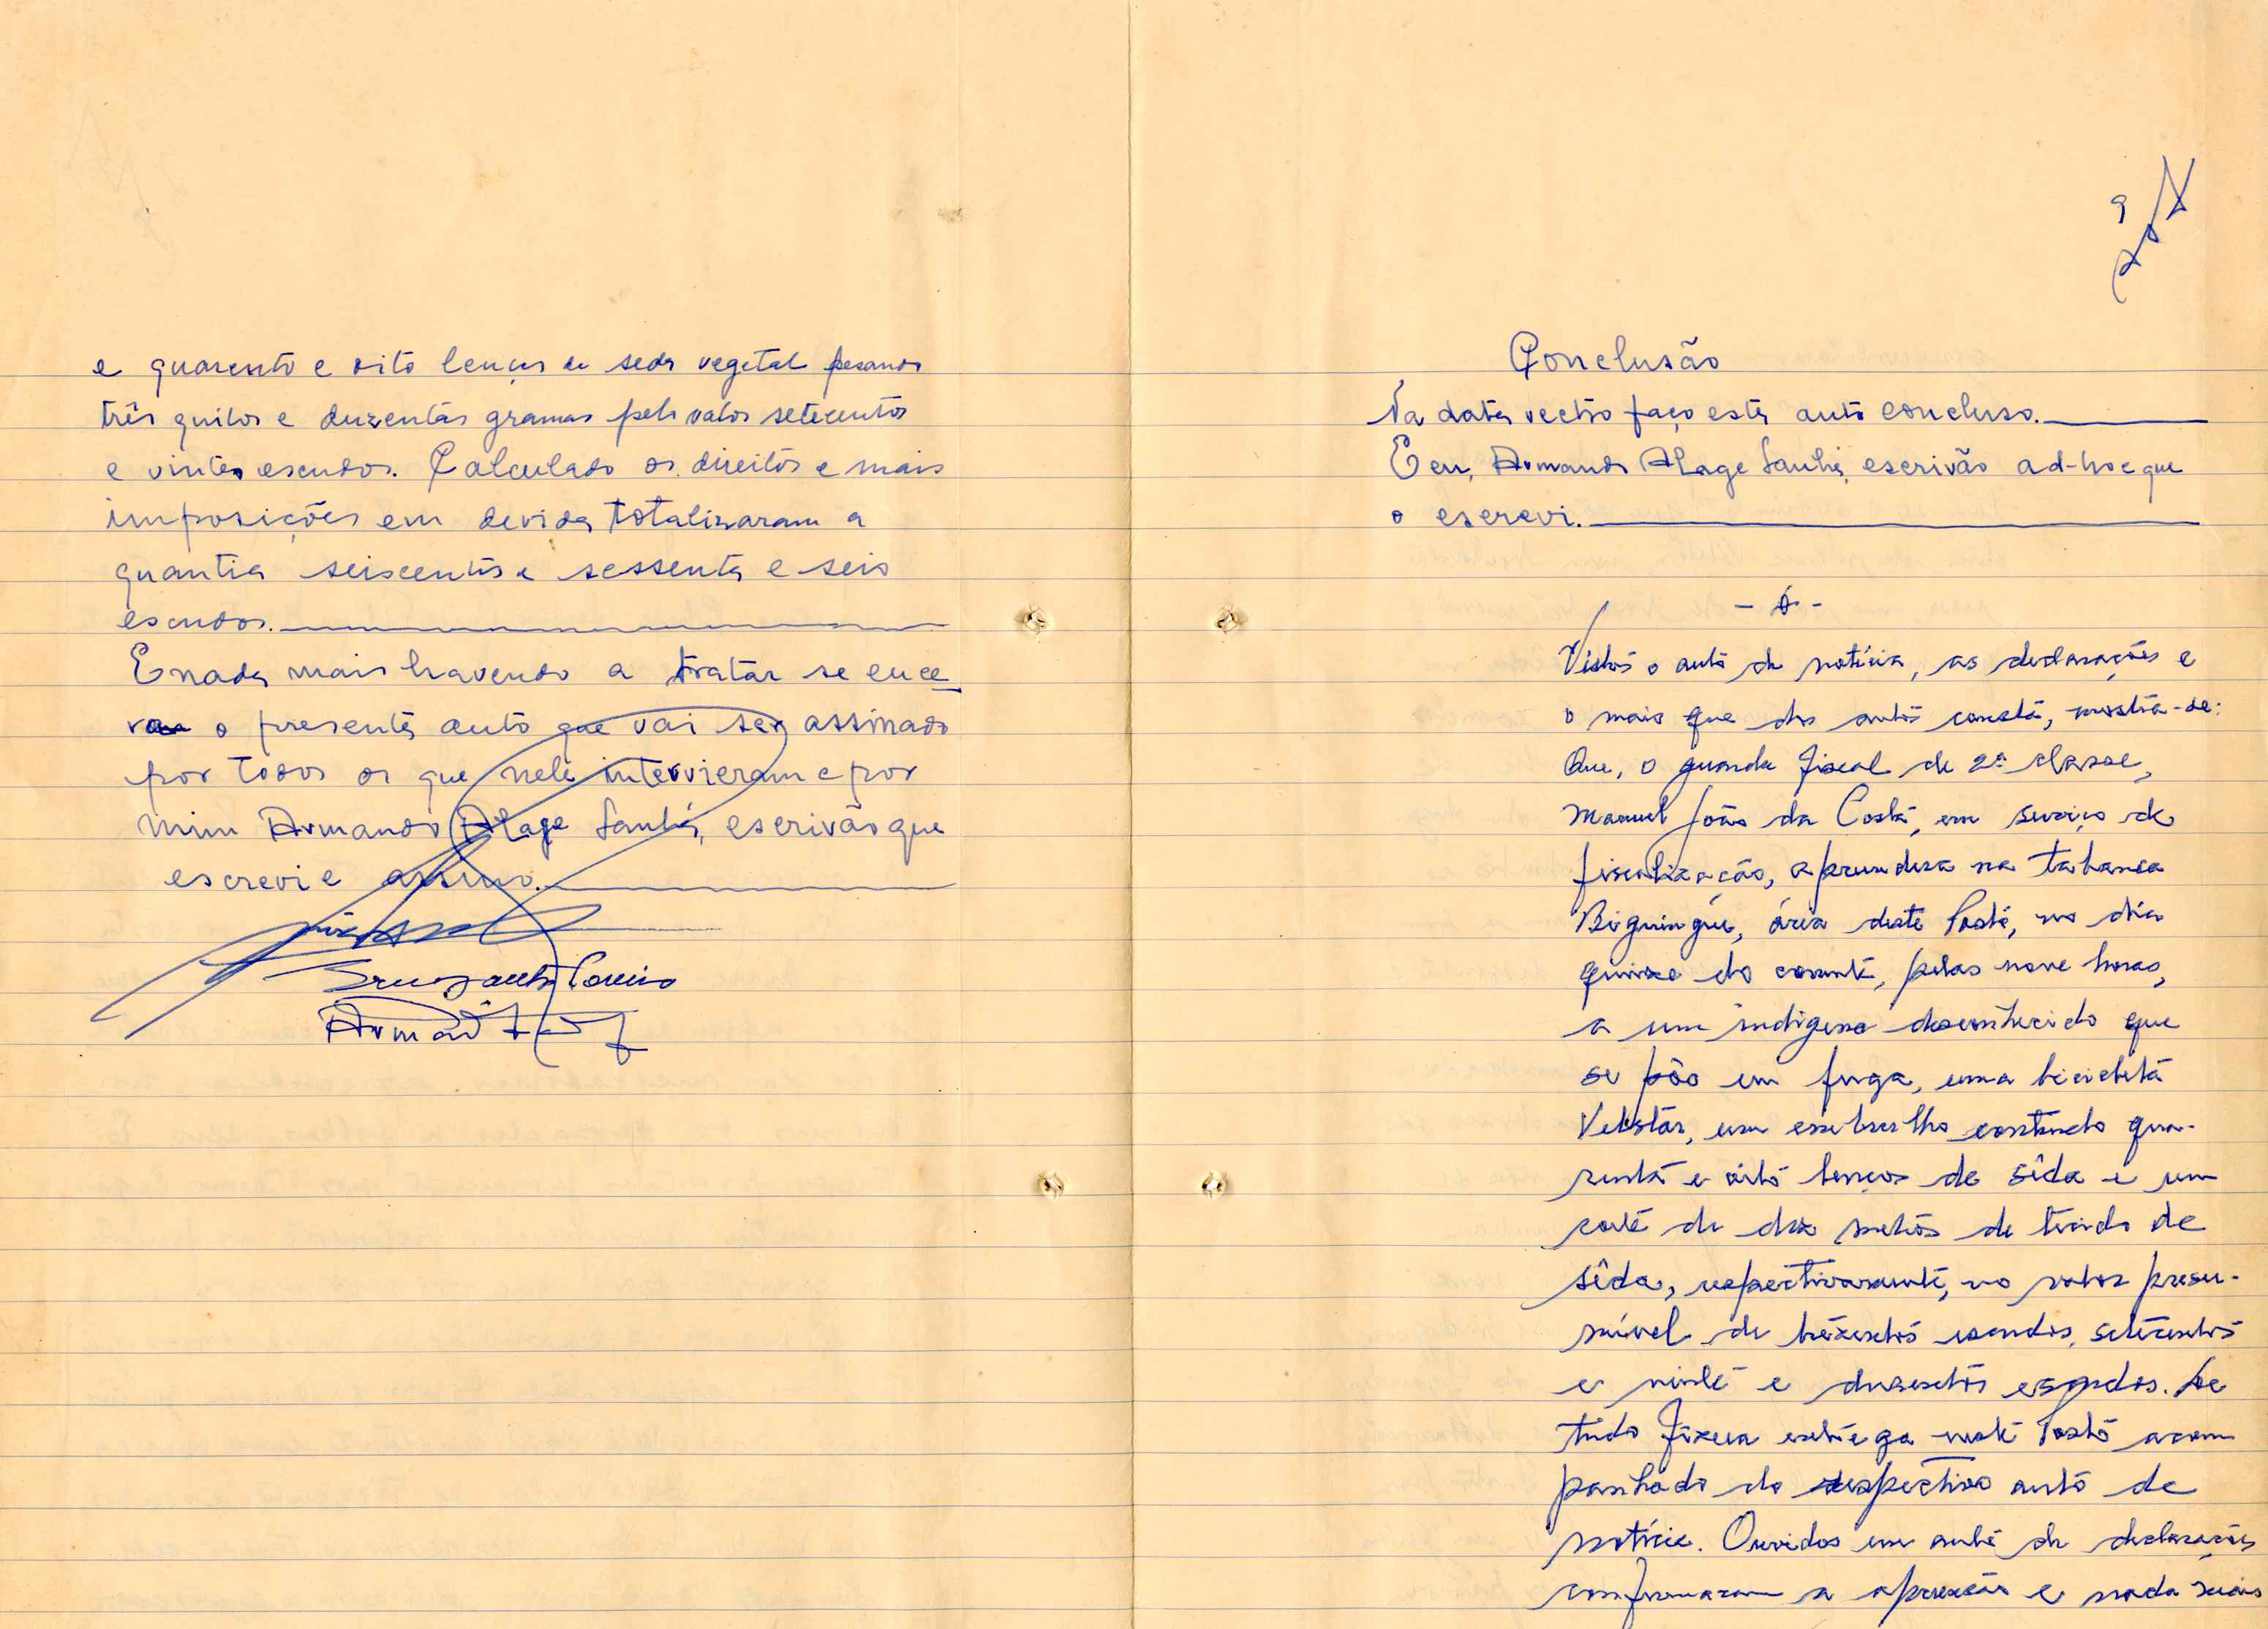 e quarenta e oito lenços de seda vegetal pesando
três quilos e duzentas gramas pelo valor setecentos
e vintes escudos. Calculado os direitos e mais
imposições em devida totalizaram a
quantia seiscentos e sessenta e seis
escudos.
E nada mais havendo a tratar se ence
rra o presente auto que vai ser assinado
por todos os que nele intervieram e por
mim Armando Alage Sanhá, escrivão que
escrevi e assino.
9
Conclusão
Na data rectro faço este auto concluso.
E eu, Armando Alage Sanhá, escrivão ad-hoc que
o escrevi.
Vistos o auto de notícia, as declarações e
o mais que dos autos consta, mostra-se:
Que, o guarda fiscal de 2ª classe,
Manuel João da Costa, em serviço de
fiscalização, aprendera na tabanca
Biguingue, área deste Posto, no dia
quinze do corrente, pelas nove horas,
a um indígena desconhecido que
se pôs em fuga, uma bicicleta
Velstar, um embrulho contendo qua-
renta e oito lenços de sêda e um
corte de dez metros de tecido de
sêda, respectivamente, no valor presu-
mível de trezentos escudos, setecentos
e vinte e duzentos escudos. De
tudo fizera entrega neste Posto acom
panhado do respectivo auto de
notícia. Ouvidos em auto de declarações
confirmaram a apreensão e nada mais